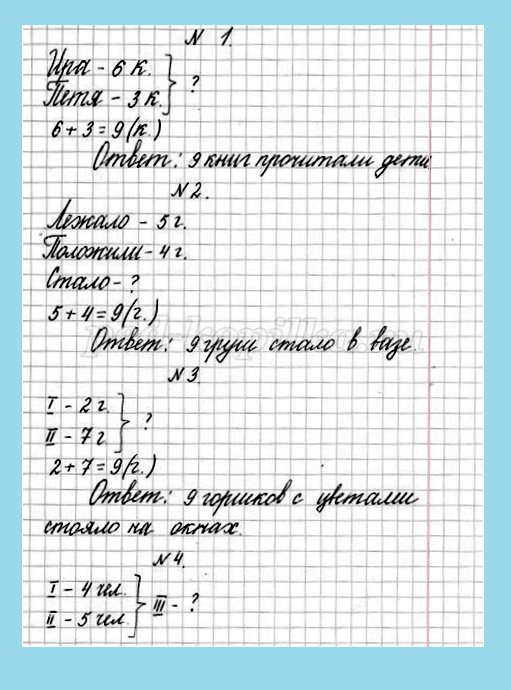 N 1.
Ира - 6 к.
Петя - 3 к. } ?
6 + 3 = 9 (к.)
Ответ: 9 книг прочитали дети
N 2.
Лежало - 5 г.
Положили - 4 г.
Стало - ?
5 + 4 = 9 (г.)
Ответ: 9 груш стало в вазе.
N 3.
I - 2 г.
II - 7 г. } ?
2 + 7 = 9 (г.)
Ответ: 9 горшков с цветами
стояло на окнах.
N 4.
I - 4 чел.
II - 5 чел. } III - ?